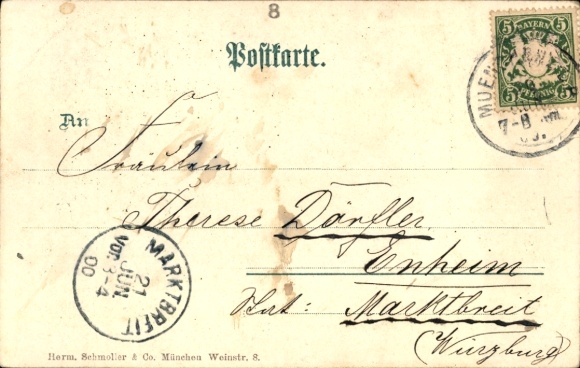 8
Postkarte.
5 BAYERN 5
5 PFENNIG 5
MUEN
7-8
An
Fräulein
Therese Dörfler
Enheim
Stat: Marktbreit
(Würzburg)
MARKTBREIT
21
JUN
Vor. 3-4
00
Herm. Schmoller & Co. München Weinstr. 8.